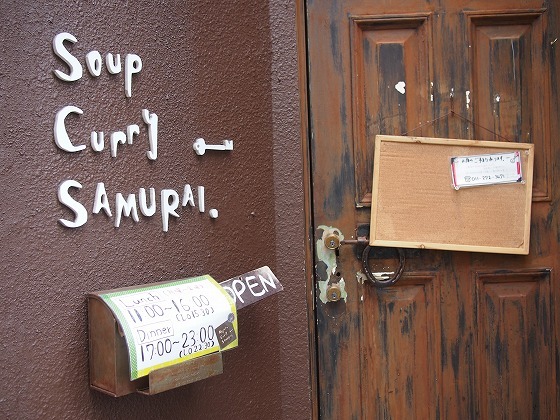 Soup
Curry
SAMURAI.
OPEN
Lunch
11:00~16:00
(L.O 15:30)
Dinner
17:00~23:00
(L.O 22:30)